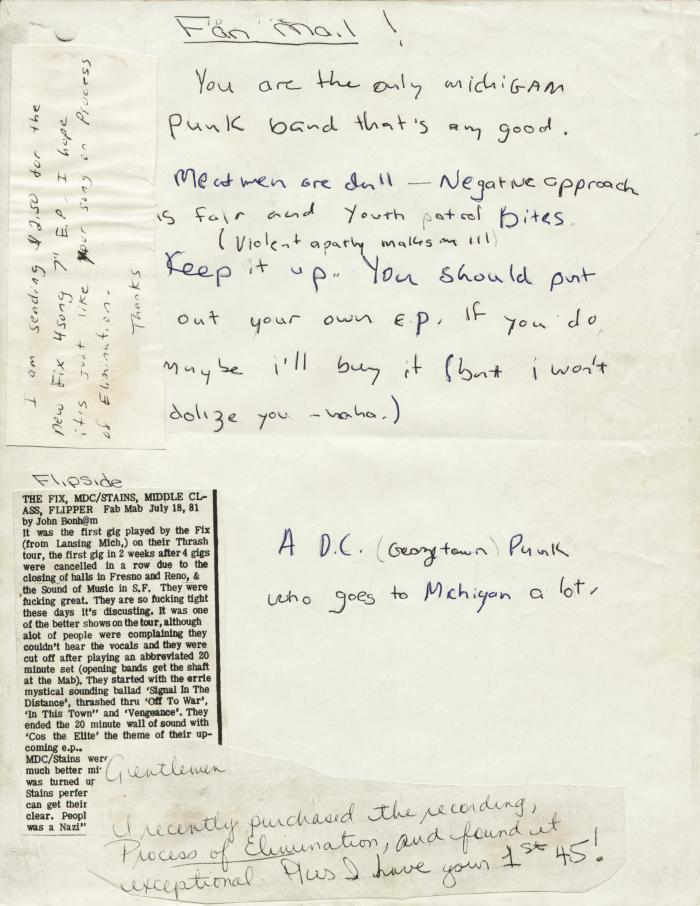 Fan Mail!
You are the only michiGAM
Punk band that's any good.
Meatmen are dull — Negative approach
is fair and Youth patrol Bites.
(Violent apathy makes m ill)
Keep it up.. You should put
out your own E.P. If you do
maybe i'll buy it (but i won't
dolize you - haha.)
I am sending $2.50 for the
New Fix 4song 7" E.P. I hope
it's just like your song on Process
of Elimination.
Thanks
Flipside
THE FIX, MDC/STAINS, MIDDLE CL-
ASS, FLIPPER Fab Mab July 18, 81
by John Bonh@m
It was the first gig played by the Fix
(from Lansing Mich,) on their Thrash
tour, the first gig in 2 weeks after 4 gigs
were cancelled in a row due to the
closing of halls in Fresno and Reno, &
the Sound of Music in S.F. They were
fucking great. They are so fucking tight
these days it's discusting. It was one
of the better shows on the tour, although
alot of people were complaining they
couldn't hear the vocals and they were
cut off after playing an abbreviated 20
minute set (opening bands get the shaft
at the Mab). They started with the errie
mystical sounding ballad 'Signal In The
Distance', thrashed thru 'Off To War',
'In This Town" and 'Vengeance'. They
ended the 20 minute wall of sound with
'Cos the Elite' the theme of their up-
coming e.p..
MDC/Stains were
much better mi
was turned up
Stains perfer
can get their
clear. Peopl
was a Nazi"
A D.C. (Georgtown) Punk
who goes to Michigan a lot.
Gentlemen
I recently purchased the recording,
Process of Elimination, and found it
exceptional. Plus I have your 1st 45!